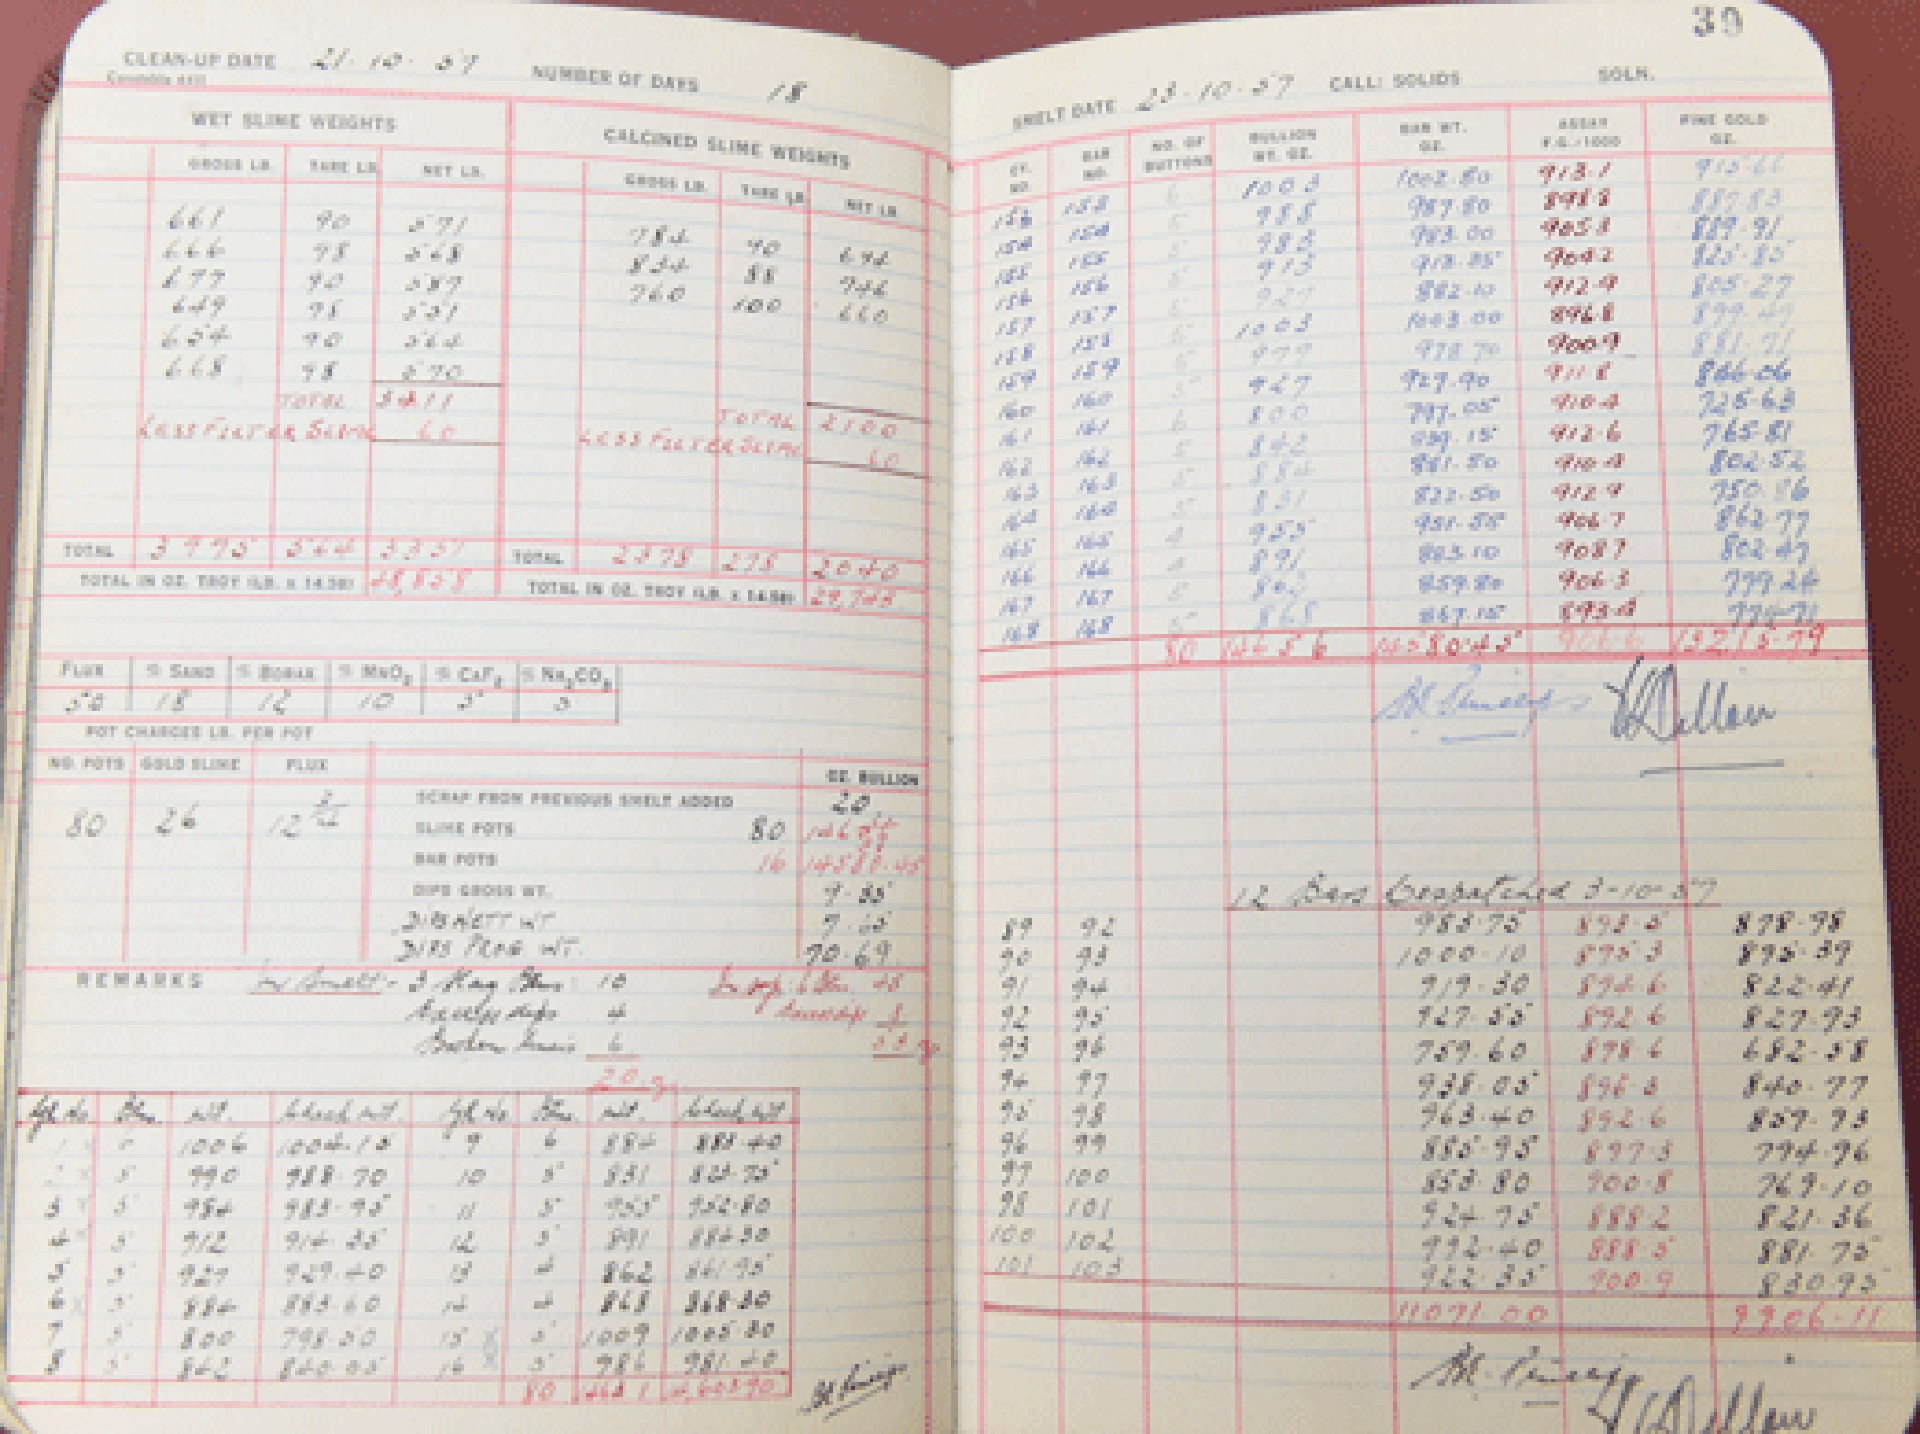 CLEAN-UP DATE 21·10·57 NUMBER OF DAYS 18
WET SLIME WEIGHTS CALCINED SLIME WEIGHTS
GROSS LB. TARE LB. NET LB. GROSS LB. TARE LB. NET LB.
661 90 571 784 90 694
666 98 568 834 88 746
677 90 587 760 100 660
649 98 551
654 90 564
668 98 570
TOTAL 3411 TOTAL 2100
LESS FILTER SLIME 60 LESS FILTER SLIME 60
TOTAL 3975 564 3351 TOTAL 2378 278 2040
TOTAL IN OZ. TROY (LB. x 14.58) 48,858 TOTAL IN OZ. TROY (LB. x 14.58) 29,743
FLUX % SAND % BORAX % MnO2 % CaF2 % Na2CO3
50 18 12 10 5 5
POT CHARGES LB. PER POT
NO. POTS GOLD SLIME FLUX OZ. BULLION
80 26 12
SCRAP FROM PREVIOUS SMELT ADDED 20
SLIME POTS 80
BAR POTS 16 14580·45
DIPS GROSS WT. 9·35
DIPS NETT WT 7·65
DIPS PROG WT. 70·69
REMARKS In Smelt - 3 Slag Btns: 10
4
6
20
Btns. wt. Check wt. Btns. wt. Check wt.
1 6 1006 1004·15 9 6 884 883·40
5 990 988·70 10 5 831
3 5 984 983·95 11 5 955 952·80
4 5 912 914·35 12 5 891 884·30
5 5 927 929·40 13 4 862 861·95
6 5 884 883·60 14 4 868 868·30
7 5 800 798·50 15 5 1009 1005·30
8 5 842 840·05 16 5 986 981·40
80
39
SMELT DATE 23·10·57 CALL: SOLIDS SOLN.
CY. NO. BAR NO. NO. OF BUTTONS BULLION WT. OZ. BAR WT. OZ. ASSAY F.G./1000 FINE GOLD OZ.
153 1003 1002·80 913·1 915·66
154 154 5 988 987·80 898·8 887·83
155 155 5 983 983·00 905·3 889·91
156 156 5 913 913·35 904·2 825·85
157 157 5 927 882·10 912·9 805·27
158 158 5 1003 1003·00 896·8 899·49
159 159 5 979 978·70 900·9 881·71
160 160 5 927 927·90 911·8 846·06
161 161 6 800 797·05 910·4 725·63
162 162 5 842 839·15 912·6 765·81
163 163 5 884 881·50 910·4 802·52
164 164 5 831 822·50 912·9 750·86
165 165 4 955 951·55 906·7 862·77
166 166 4 891 883·10 908·7 802·47
167 167 5 862 859·80 906·3 779·24
168 168 5 868 867·15 893·4 774·71
80 14656 14580·45 906·6 13215·79
12 Bars Despatched 3-10-57
89 92 983·75 893·5 878·98
90 93 1000·10 895·3 895·39
91 94 919·30 894·6 822·41
92 95 927·55 892·6 827·93
93 96 759·60 898·6 682·58
94 97 938·05 896·3 840·77
95 98 963·40 892·6 859·93
96 99 885·95 897·3 794·96
97 100 853·80 900·8 769·10
98 101 924·75 888·2 821·36
100 102 992·40 888·5 881·75
101 103 922·35 900·9 830·95
11071·00 9906·11